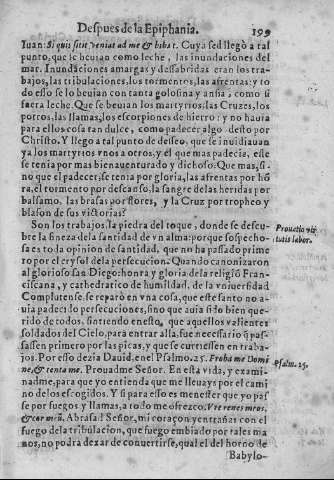 Despues de la Epiphania. 199
Iuan: Si quis sitit veniat ad me & bibat. Cuya sed llegò a tal
punto, que le beuian como leche, las inundaciones del
mar. Inundaciones amargas y dessabridas eran los tra-
bajos, las tribulaciones, los tormentos, las afrentas: y to
do esso se lo beuian con tanta golosina y ansia, como si
fuera leche. Que se beuian los martyrios, las Cruzes, los
potros, las llamas, los escorpiones de hierro: y no hauia
para ellos cosa tan dulce, como padecer algo desto por
Christo. Y llego a tal punto de desseo, que se inuidiauan
ya los martyrios vnos a otros, y el que mas padecia, esse
se tenia por mas bienauenturado y dichoso. Que mas, si
no que el padecer, se tenia por gloria, las afrentas por hõ
ra, el tormento por descanso, la sangre de las heridas por
balsamo, las brasas por flores, y la Cruz por tropheo y
blason de sus victorias?
Son los trabajos, la piedra del toque, donde se descu-
bre la fineza de la santidad de vn alma: porque sospecho
sa es toda opinion de santidad, que no ha passado prime
ro por el crysol de la persecucion. Quando canonizaron
al glorioso san Diego: honra y gloria de la religiõ Fran-
ciscana, y cathedratico de humildad, de la vniuersidad
Complutense, se reparò en vna cosa, que este santo no a-
uia padecido persecuciones, sino que auia sido bien que-
rido de todos, sintiendo en esto, que aquellos valientes
soldados del Cielo, para entrar allà, fue necessario q̃ pas-
sassen primero por las picas, y que se curtiessen en traba-
jos. Por esso dezia Dauid, en el Psalmo. 25. Proba me Domi
ne, & tenta me. Prouadme Señor. En esta vida, y exami-
nadme, para que yo entienda que me lleuays por el cami
no de los escogidos. Y si para esso es menester que yo pas
se por fuegos y llamas, a todo me ofrezco. Vre renes meos,
& cor meũ. Abrasad Señor, mi coraçon y entrañas con el
fuego de la tribulacion, que fuego embiado por tales ma
nos, no podra dexar de conuertirse, qual el del horno de
Babylo-
Prouatio vir
tutis labor.
Psalm. 25.